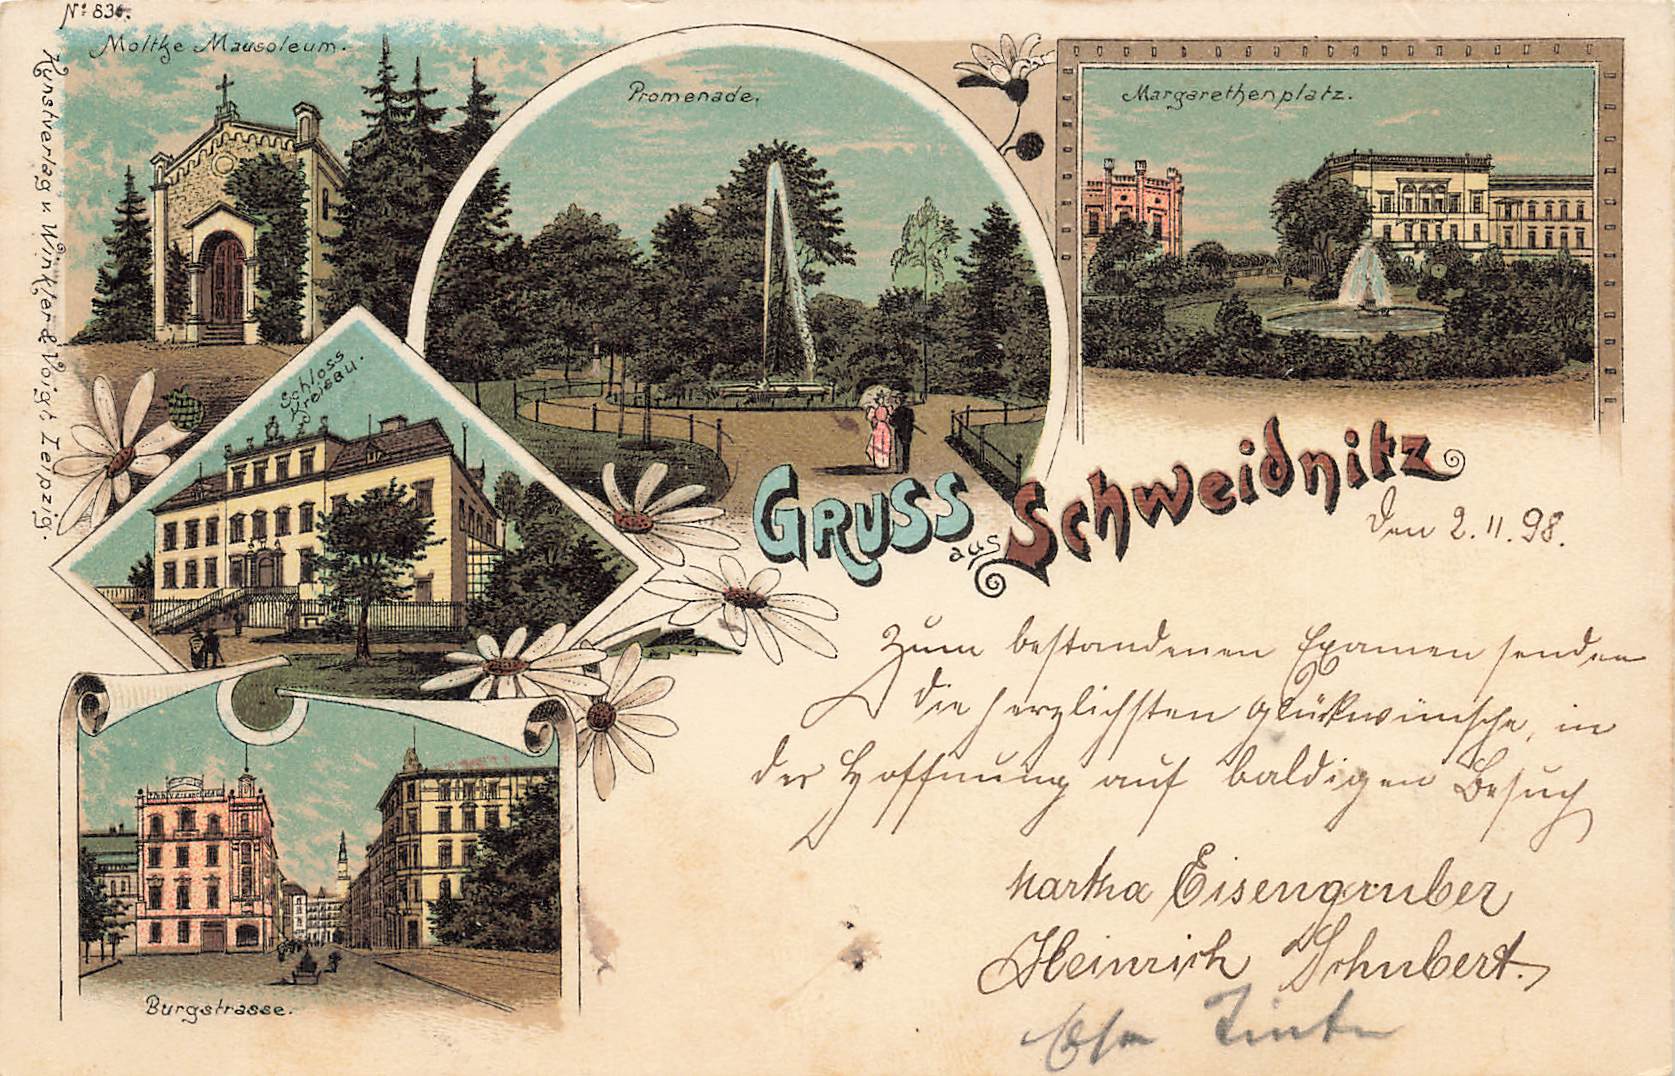 Nº 836.
Moltke Mausoleum.
Kunstverlag v. Winkler & Voigt Leipzig.
Promenade.
Margarethenplatz.
Schloss
Kreisau.
Gruss
aus
Schweidnitz
Den 2.11.98.
Zum bestandenen Examen senden
die herzlichsten Glückwünsche, in
der Hoffnung auf baldigen Besuch
Martha Eisengruber
Heinrich Schubert.
Burgstrasse.